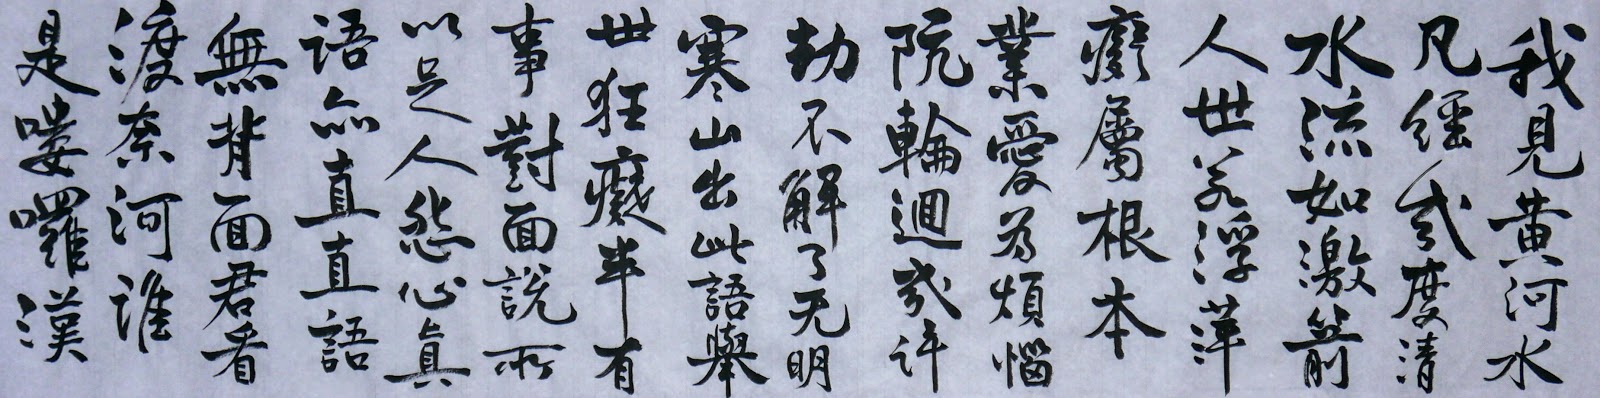 我見黄河水
凡經幾度清
水流如激箭
人世若浮萍
癡屬根本
業愛為煩惱
阬輪迴幾許
劫不解了无明
寒山出此語舉
世狂癡半有
事對面說所
以足人怨心真
語亦直直語
無背面君看
渡奈河誰
是嘍囉漢